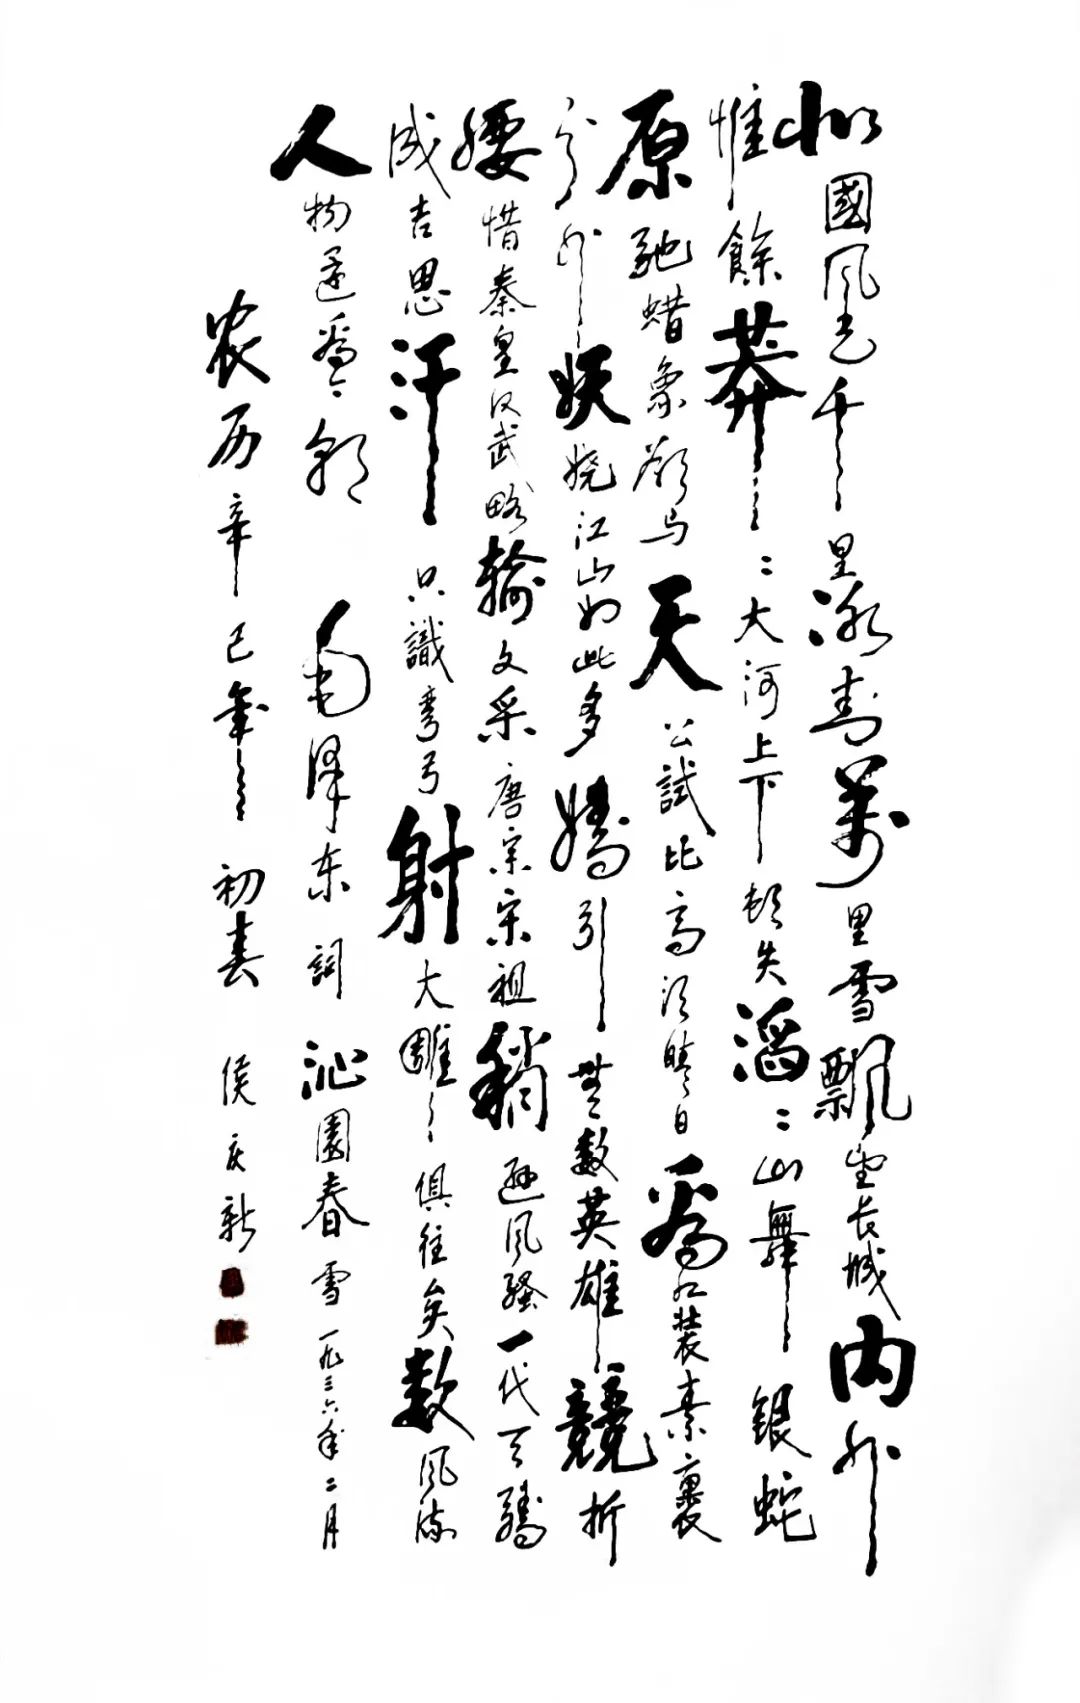 北國風光千里冰封萬里雪飄望长城内外
惟餘莽〻大河上下頓失滔〻山舞銀蛇
原馳蜡象欲与天公試比高须晴日看红装素裹
分外妖娆江山如此多嬌引無数英雄競折
腰惜秦皇汉武略输文采唐宗宋祖稍逊風騷一代天驕
成吉思汗只識弯弓射大雕俱往矣数風流
人物还看今朝 毛泽东詞沁園春雪一九三六年二月
农历辛巳年初春 侯庆新